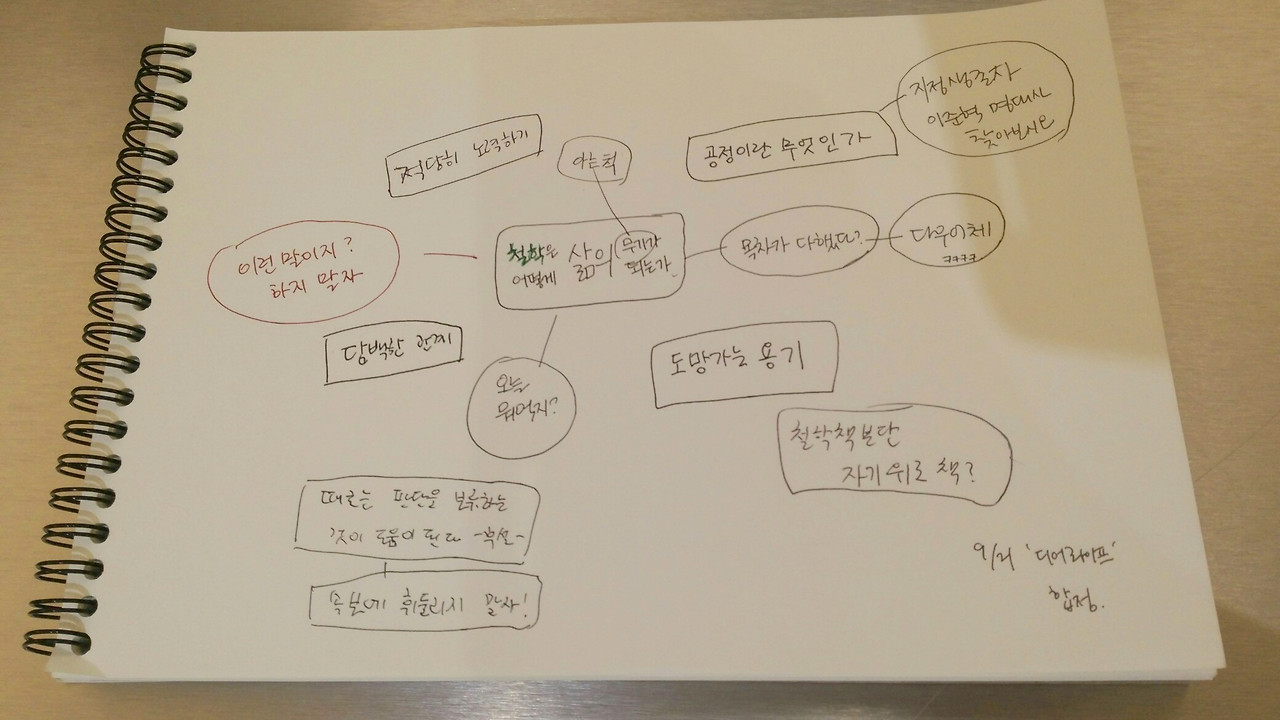 지정생존자
이준혁 명대사
찾아보시오
공정이란 무엇인가
적당히 노력하기
아는척
철학은
어떻게 삶이 무기가
되는가
목차가 다했다?
다우어체
ㅋㅋㅋㅋ
이런 말이지?
하지 말자
담백한 관계
도망가는 용기
오늘
뭐먹지?
철학책보단
자기위로 책?
때로는 판단을 보류하는
것이 도움이 된다
속보에 휘둘리지 말자!
9/21 '디어라이프'
합정.